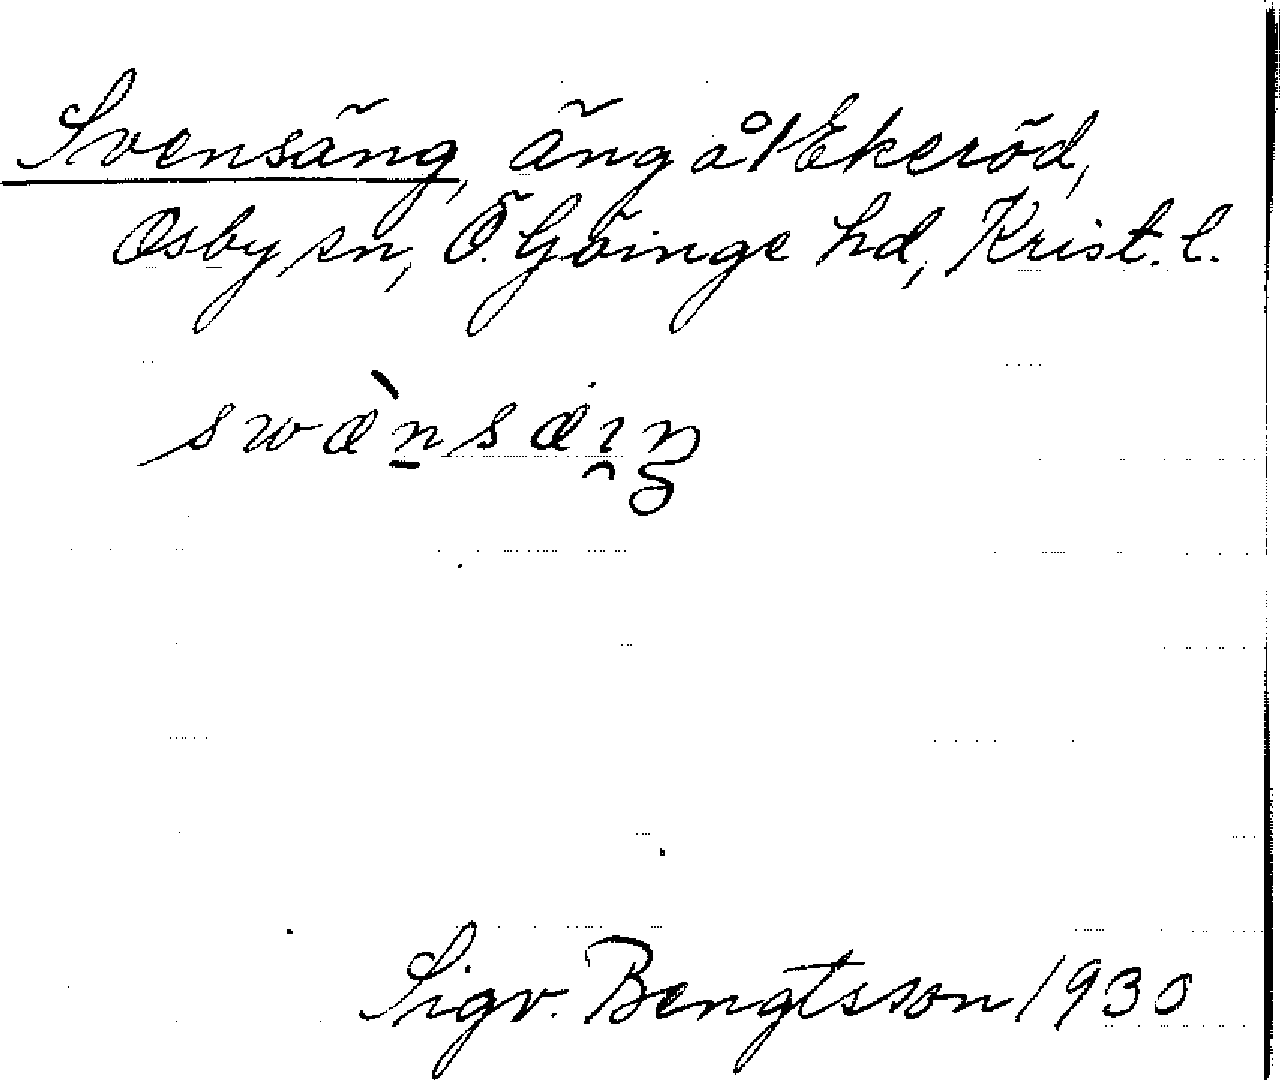 Svensäng, äng å 1 Ekeröd,
Osby sn, Ö. Göinge hd, Krist. l.
swæ̀n̠sæɪ̯ŋ
Sigv. Bengtsson 1930